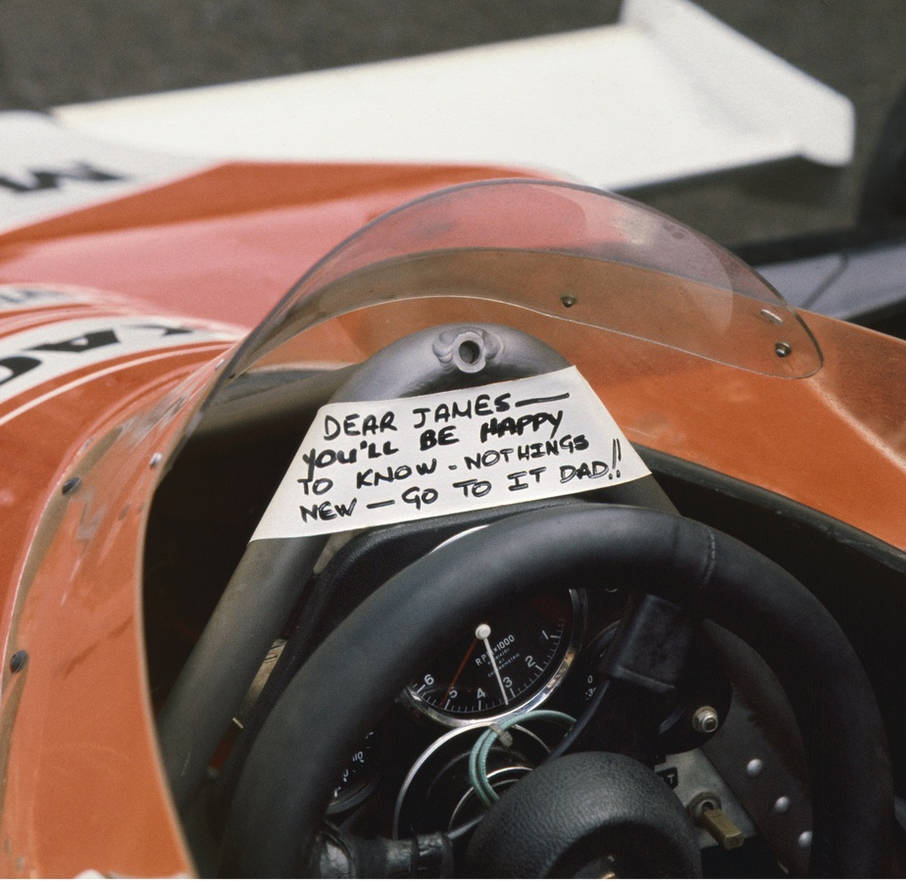 DEAR JAMES—
YOU'LL BE HAPPY
TO KNOW - NOTHINGS
NEW — GO TO IT DAD!!
RPM x1000
1
2
3
4
5
6